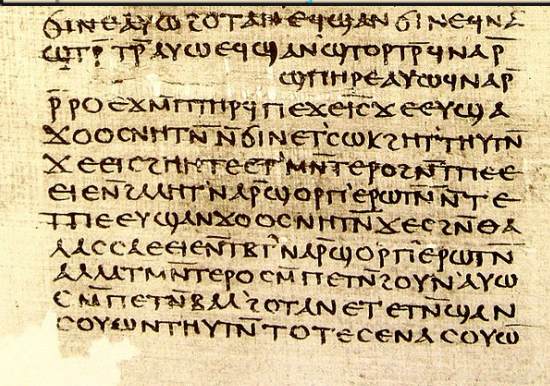 ϭⲓⲛⲉⲁⲩⲱϩⲟⲧⲁⲛⲉϥϣⲁⲛϭⲓⲛⲉϥⲛⲁ
ϣⲧⲣ̄ⲧⲣ̄ⲁⲩⲱⲉϥϣⲁⲛϣⲧⲟⲣⲧⲣ̄ϥⲛⲁⲣ̄
ϣⲡⲏⲣⲉⲁⲩⲱϥⲛⲁⲣ̄
ⲣ̄ⲣⲟⲉϫⲙ̄ⲡⲧⲏⲣϥⲡⲉϫⲉⲓ̄ⲥ̄ϫⲉⲉⲩϣⲁ
ϫⲟⲟⲥⲛⲏⲧⲛ̄ⲛ̄ϭⲓⲛⲉⲧⲥⲱⲕϩⲏⲧⲧⲏⲩⲧⲛ̄
ϫⲉⲉⲓⲥϩⲏⲏⲧⲉⲉⲧⲙⲛ̄ⲧⲉⲣⲟϩⲛ̄ⲧⲡⲉⲉ
ⲉⲓⲉⲛ̄ϩⲁⲗⲏⲧⲛⲁⲣ̄ϣⲟⲣⲡⲉⲣⲱⲧⲛ̄ⲛ̄ⲧⲉ
ⲧⲡⲉⲉⲩϣⲁⲛϫⲟⲟⲥⲛⲏⲧⲛ̄ϫⲉⲥϩⲛ̄ⲑⲁ
ⲗⲁⲥⲥⲁⲉⲉⲓⲉⲛ̄ⲧⲃ̄ⲧⲛⲁⲣ̄ϣⲟⲣⲡⲉⲣⲱⲧⲛ̄
ⲁⲗⲗⲁⲧⲙⲛ̄ⲧⲉⲣⲟⲥⲙ̄ⲡⲉⲧⲛ̄ϩⲟⲩⲛⲁⲩⲱ
ⲥⲙ̄ⲡⲉⲧⲛ̄ⲃⲁⲗϩⲟⲧⲁⲛⲉⲧⲉⲧⲛ̄ϣⲁⲛ
ⲥⲟⲩⲱⲛⲧⲏⲩⲧⲛ̄ⲧⲟⲧⲉⲥⲉⲛⲁⲥⲟⲩⲱ